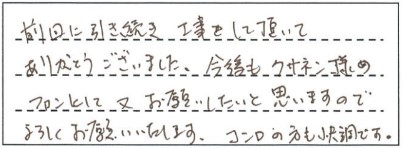 前回に引き続き 工事をして頂いて
ありがとうございました。今後も クサネン様の
フロンとして 又 お願いしたいと 思いますので
よろしく お願いいたします、 コンロの方も快調です。